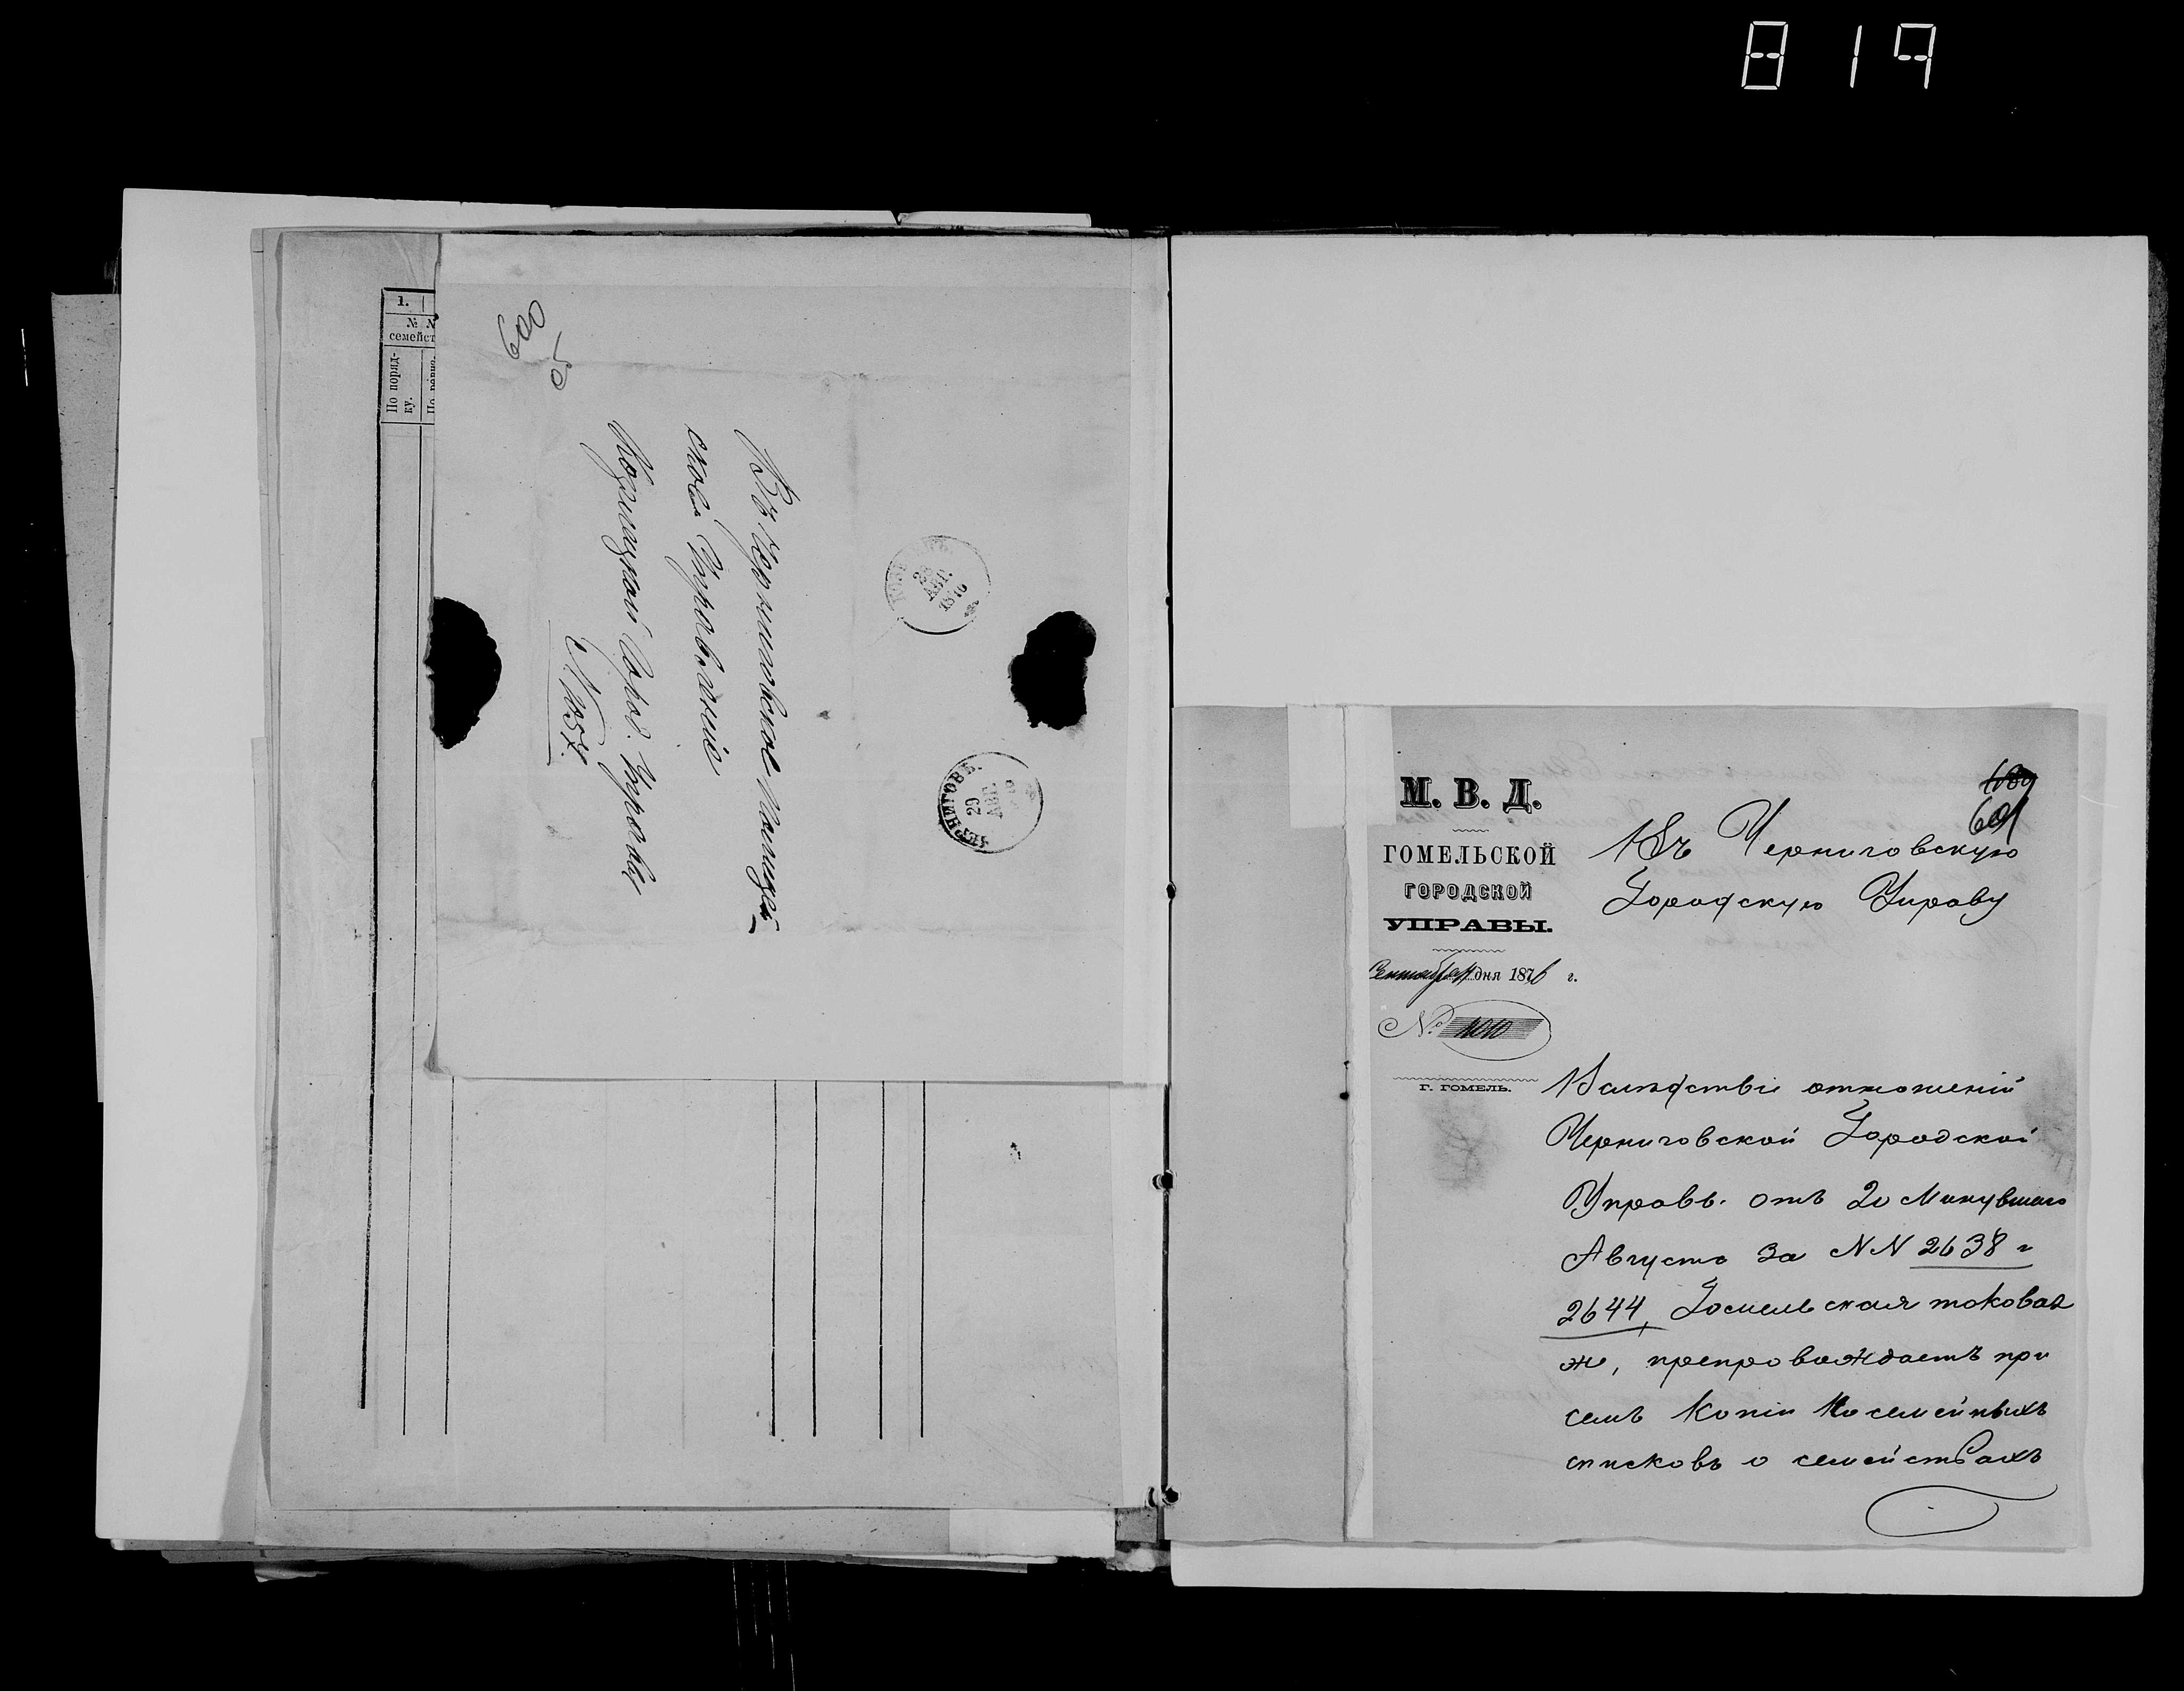 819
1.
№ №
семейст
По поряд-
ку.
600
об
Въ Черниговское Полицей
ское Управленіе
Козелецкой Город. Управы
N 1057.
28
АВГ.
1876
ЧЕРНИГОВЪ.
29
АВГ.
М. В. Д.
ГОМЕЛЬСКОЙ
ГОРОДСКОЙ
УПРАВЫ.
Сентября дня 1876 г.
№ 1010
Г. ГОМЕЛЬ.
601
Въ Черниговскую
Городскую Управу
Вслѣдствіе отношеній
Черниговской Городской
Управы отъ 20 Минувшаго
Августа за NN 2638 и
2644, Гомельская таковая
же, препровождаетъ при
семъ Копіи Посемейныхъ
списковъ о семействахъ